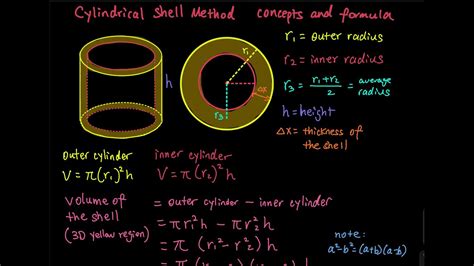 Cylindrical Shell Method concepts and formula
r₁ = outer radius
r₂ = inner radius
r₃ = (r₁+r₂)/2 = average radius
h = height
Δx = thickness of the shell
h
r₁
r₂
r₃
Δx
outer cylinder
V = π(r₁)²h
inner cylinder
V = π(r₂)²h
volume of the shell
(3D yellow region)
= outer cylinder - inner cylinder
= πr₁²h - πr₂²h
= π (r₁²-r₂²) h
note:
a²-b²=(a+b)(a-b)